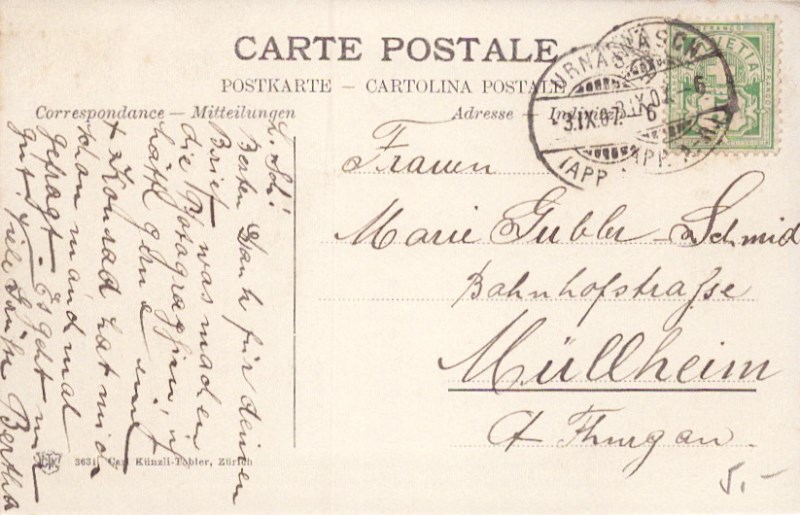 CARTE POSTALE
POSTKARTE — CARTOLINA POSTALE
Correspondance — Mitteilungen
Adresse —
URNÄSCH
3.IX.07. 6
(APP.
HELVETIA
L. Sch!
Besten Dank für deinen
Brief was machen
die Photograffin i
hätt gern eini
+ Konrad hat mich
schon manchmal
gefragt. Es geht mir
gut. Viele Grüsse Bertha
Frauen
Marie Gubler-Schmid
Bahnhofstrasse
Müllheim
Ct Thurgau.
3631 Carl Künzli-Tobler, Zürich
5.-